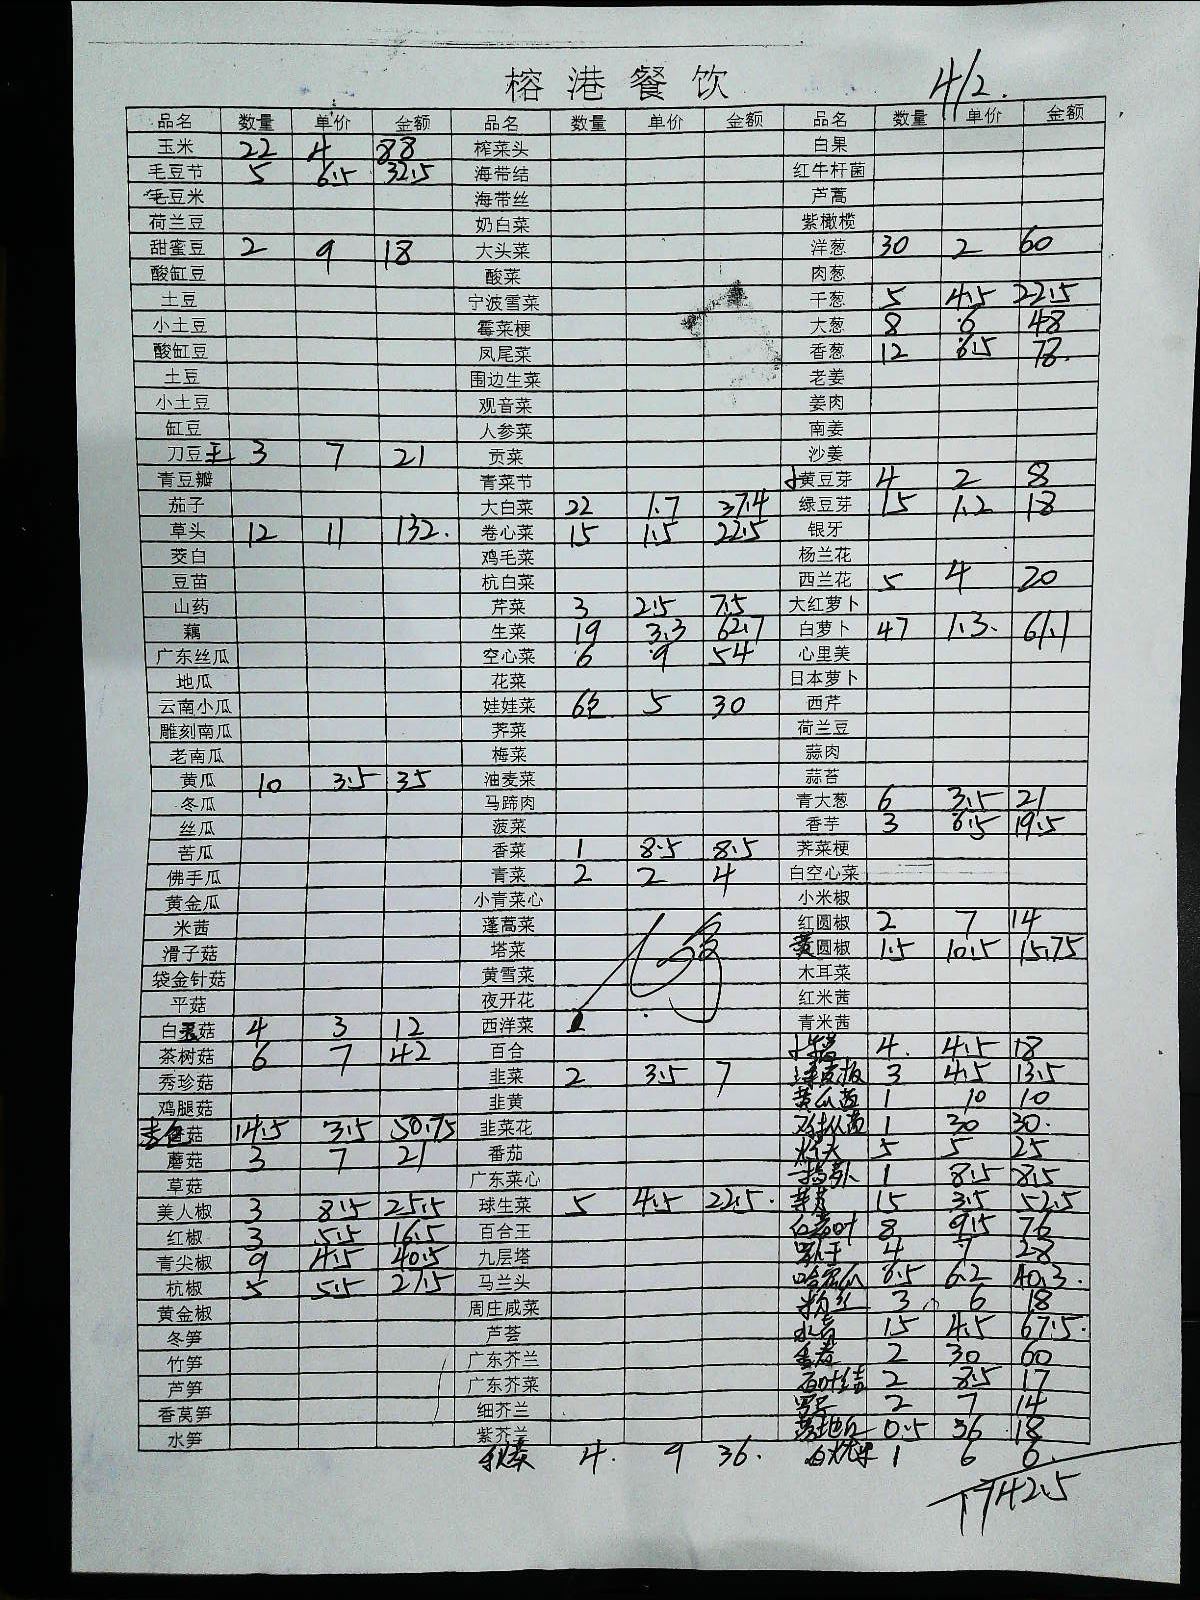 榕港餐饮
4/2.
品名 数量 单价 金额 品名 数量 单价 金额 品名 数量 单价 金额
玉米 22 4 88 榨菜头 白果
毛豆节 5 6.5 32.5 海带结 红牛杆菌
毛豆米 海带丝 芦蒿
荷兰豆 奶白菜 紫橄榄
甜蜜豆 2 9 18 大头菜 洋葱 30 2 60
酸缸豆 酸菜 肉葱
土豆 宁波雪菜 干葱 5 4.5 22.5
小土豆 霉菜梗 大葱 8 6 48
酸缸豆 凤尾菜 香葱 12 6.5 78.
土豆 围边生菜 老姜
小土豆 观音菜 姜肉
缸豆 人参菜 南姜
刀豆王 3 7 21 贡菜 沙姜
青豆瓣 青菜节 黄豆芽 4 2 8
茄子 大白菜 22 1.7 37.4 绿豆芽 15 1.2 18
草头 12 11 132. 卷心菜 15 1.5 22.5 银牙
茭白 鸡毛菜 杨兰花
豆苗 杭白菜 西兰花 5 4 20
山药 芹菜 3 2.5 7.5 大红萝卜
藕 生菜 19 3.3 62.7 白萝卜 47 1.3. 61.1
广东丝瓜 空心菜 6 9 54 心里美
地瓜 花菜 日本萝卜
云南小瓜 娃娃菜 6包 5 30 西芹
雕刻南瓜 荠菜 荷兰豆
老南瓜 梅菜 蒜肉
黄瓜 10 3.5 35 油麦菜 蒜苔
冬瓜 马蹄肉 青大葱 6 3.5 21
丝瓜 菠菜 香芋 3 6.5 19.5
苦瓜 香菜 1 8.5 8.5 荠菜梗
佛手瓜 青菜 2 2 4 白空心菜
黄金瓜 小青菜心 小米椒
米茜 蓬蒿菜 红圆椒 2 7 14
滑子菇 塔菜 黄圆椒 1.5 10.5 15.75
袋金针菇 黄雪菜 木耳菜
平菇 夜开花 红米茜
白灵菇 4 3 12 西洋菜 青米茜
茶树菇 6 7 42 百合 4. 4.5 18
秀珍菇 韭菜 2 3.5 7 3 4.5 13.5
鸡腿菇 韭黄 1 10 10
菇 14.5 3.5 50.75 韭菜花 1 30 30.
蘑菇 3 7 21 番茄 5 5 25
草菇 广东菜心 1 8.5 8.5
美人椒 3 8.5 25.5 球生菜 5 4.5 22.5. 15 3.5 52.5
红椒 3 5.5 16.5 百合王 8 9.5 76
青尖椒 9 4.5 40.5 九层塔 4 7 28
杭椒 5 5.5 27.5 马兰头 哈密瓜 6.5 6.2 40.3.
黄金椒 周庄咸菜 粉丝 3 6 18
冬笋 芦荟 15 4.5 67.5.
竹笋 广东芥兰 2 30 60
芦笋 广东芥菜 百叶结 2 8.5 17
香莴笋 细芥兰 2 7 14
水笋 紫芥兰 0.5 36 18
4. 9 36. 1 6 6.
1942.5